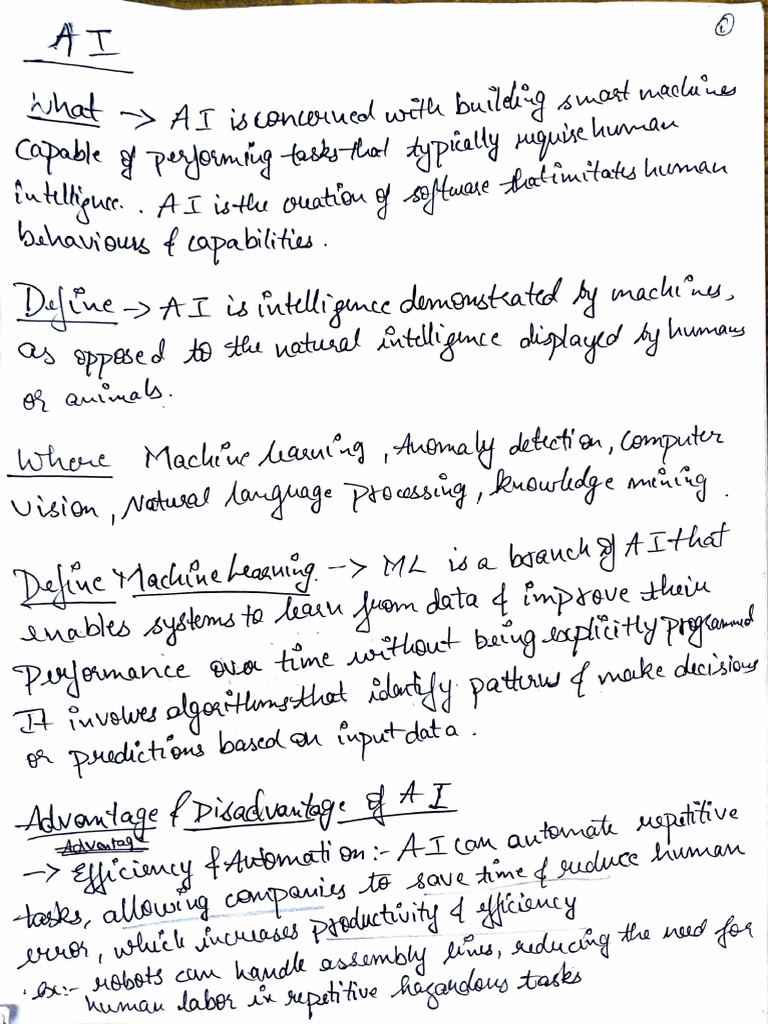 ①
AI
What → AI is concerned with building smart machines
capable of performing tasks that typically require human
intelligence. . AI is the creation of software that imitates human
behaviours & capabilities.
Define → AI is intelligence demonstrated by machines,
as opposed to the natural intelligence displayed by humans
or animals.
Where Machine learning, Anomaly detection, computer
vision, Natural language processing, knowledge mining.
Define Machine Learning. → ML is a branch of AI that
enables systems to learn from data & improve their
performance over time without being explicitly programmed
It involves algorithms that identify patterns & make decisions
or predictions based on input data.
Advantage & Disadvantage of AI
Advantage
→ Efficiency & Automation:- AI can automate repetitive
tasks, allowing companies to save time & reduce human
error, which increases productivity & efficiency
. ex:- robots can handle assembly lines, reducing the need for
human labor in repetitive hazardous tasks